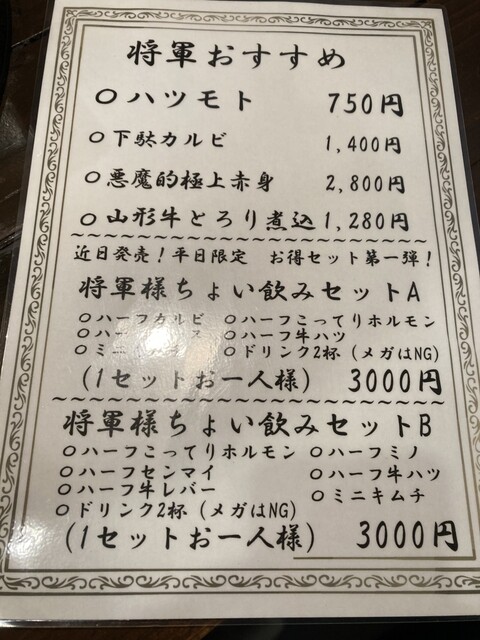 将軍おすすめ
○ハツモト 750円
○下駄カルビ 1,400円
○悪魔的極上赤身 2,800円
○山形牛とろり煮込 1,280円
近日発売！平日限定 お得セット第一弾！
将軍様ちょい飲みセットA
○ハーフカルビ ○ハーフこってりホルモン
○ハーフ ○ハーフ牛ハツ
○ミニ ○ドリンク2杯(メガはNG)
(1セットお一人様) 3000円
将軍様ちょい飲みセットB
○ハーフこってりホルモン ○ハーフミノ
○ハーフセンマイ ○ハーフ牛ハツ
○ハーフ牛レバー ○ミニキムチ
○ドリンク2杯(メガはNG)
(1セットお一人様) 3000円